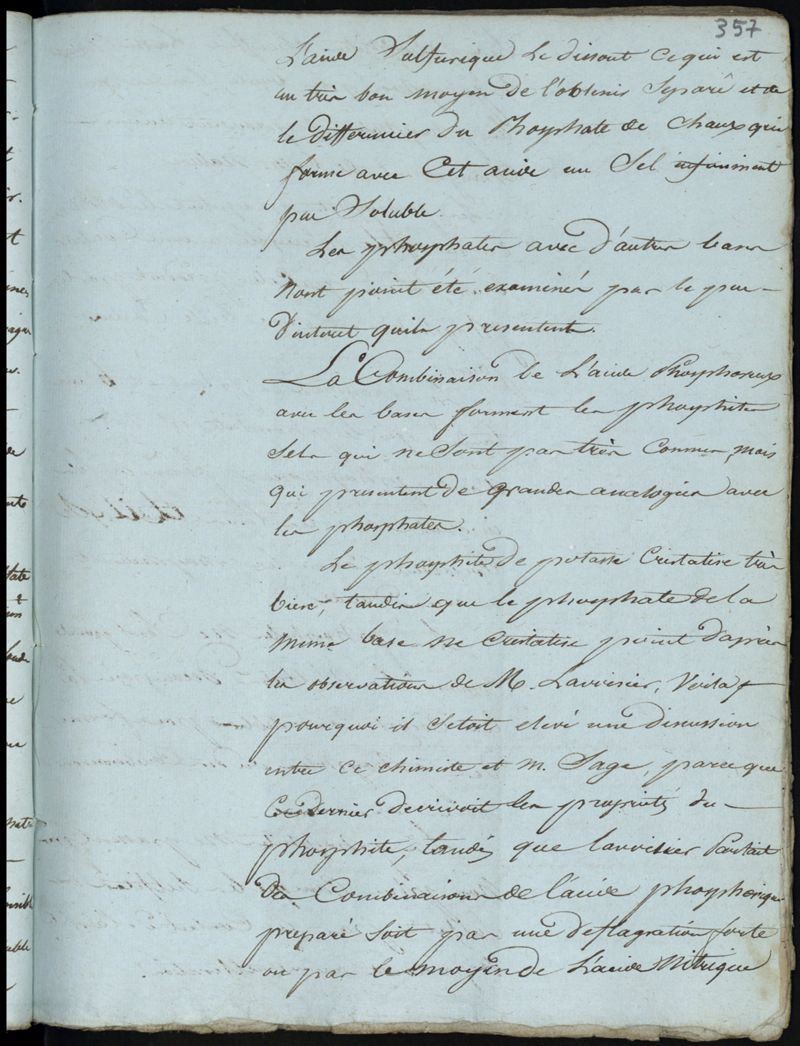 357
L'acide Sulfurique le dissout ce qui est
un très bon moyen de l'obtenir Separé et de
le differencier du Phosphate de Chaux qui
forme avec Cet acide un Sel infiniment
peu Soluble.
Les phosphates avec d'autres bases
n'ont point été examinés par le peu
d'interet quils presentent.
La Combinaison de L'acide Phosphoreux
avec les bases forment les phosphites
Sels qui ne Sont pas très Connus, mais
qui presentent de grandes analogies avec
les phosphates.
Le phosphite de potasse Cristalise très
bien, tandis que le phosphate de la
meme base ne Cristalise point d'après
les observations de M. Lavoisier, Voila
pourquoi il S'etoit elevé une discussion
entre ce chimiste et m. Sage, parce que
Ce dernier decrivoit les propriétés du
phosphite, tandis que lavoisier Parlait
des Combinaisons de l'acide phosphorique
preparé Soit par une deflagration forte
ou par le moyen de L'acide Nitrique